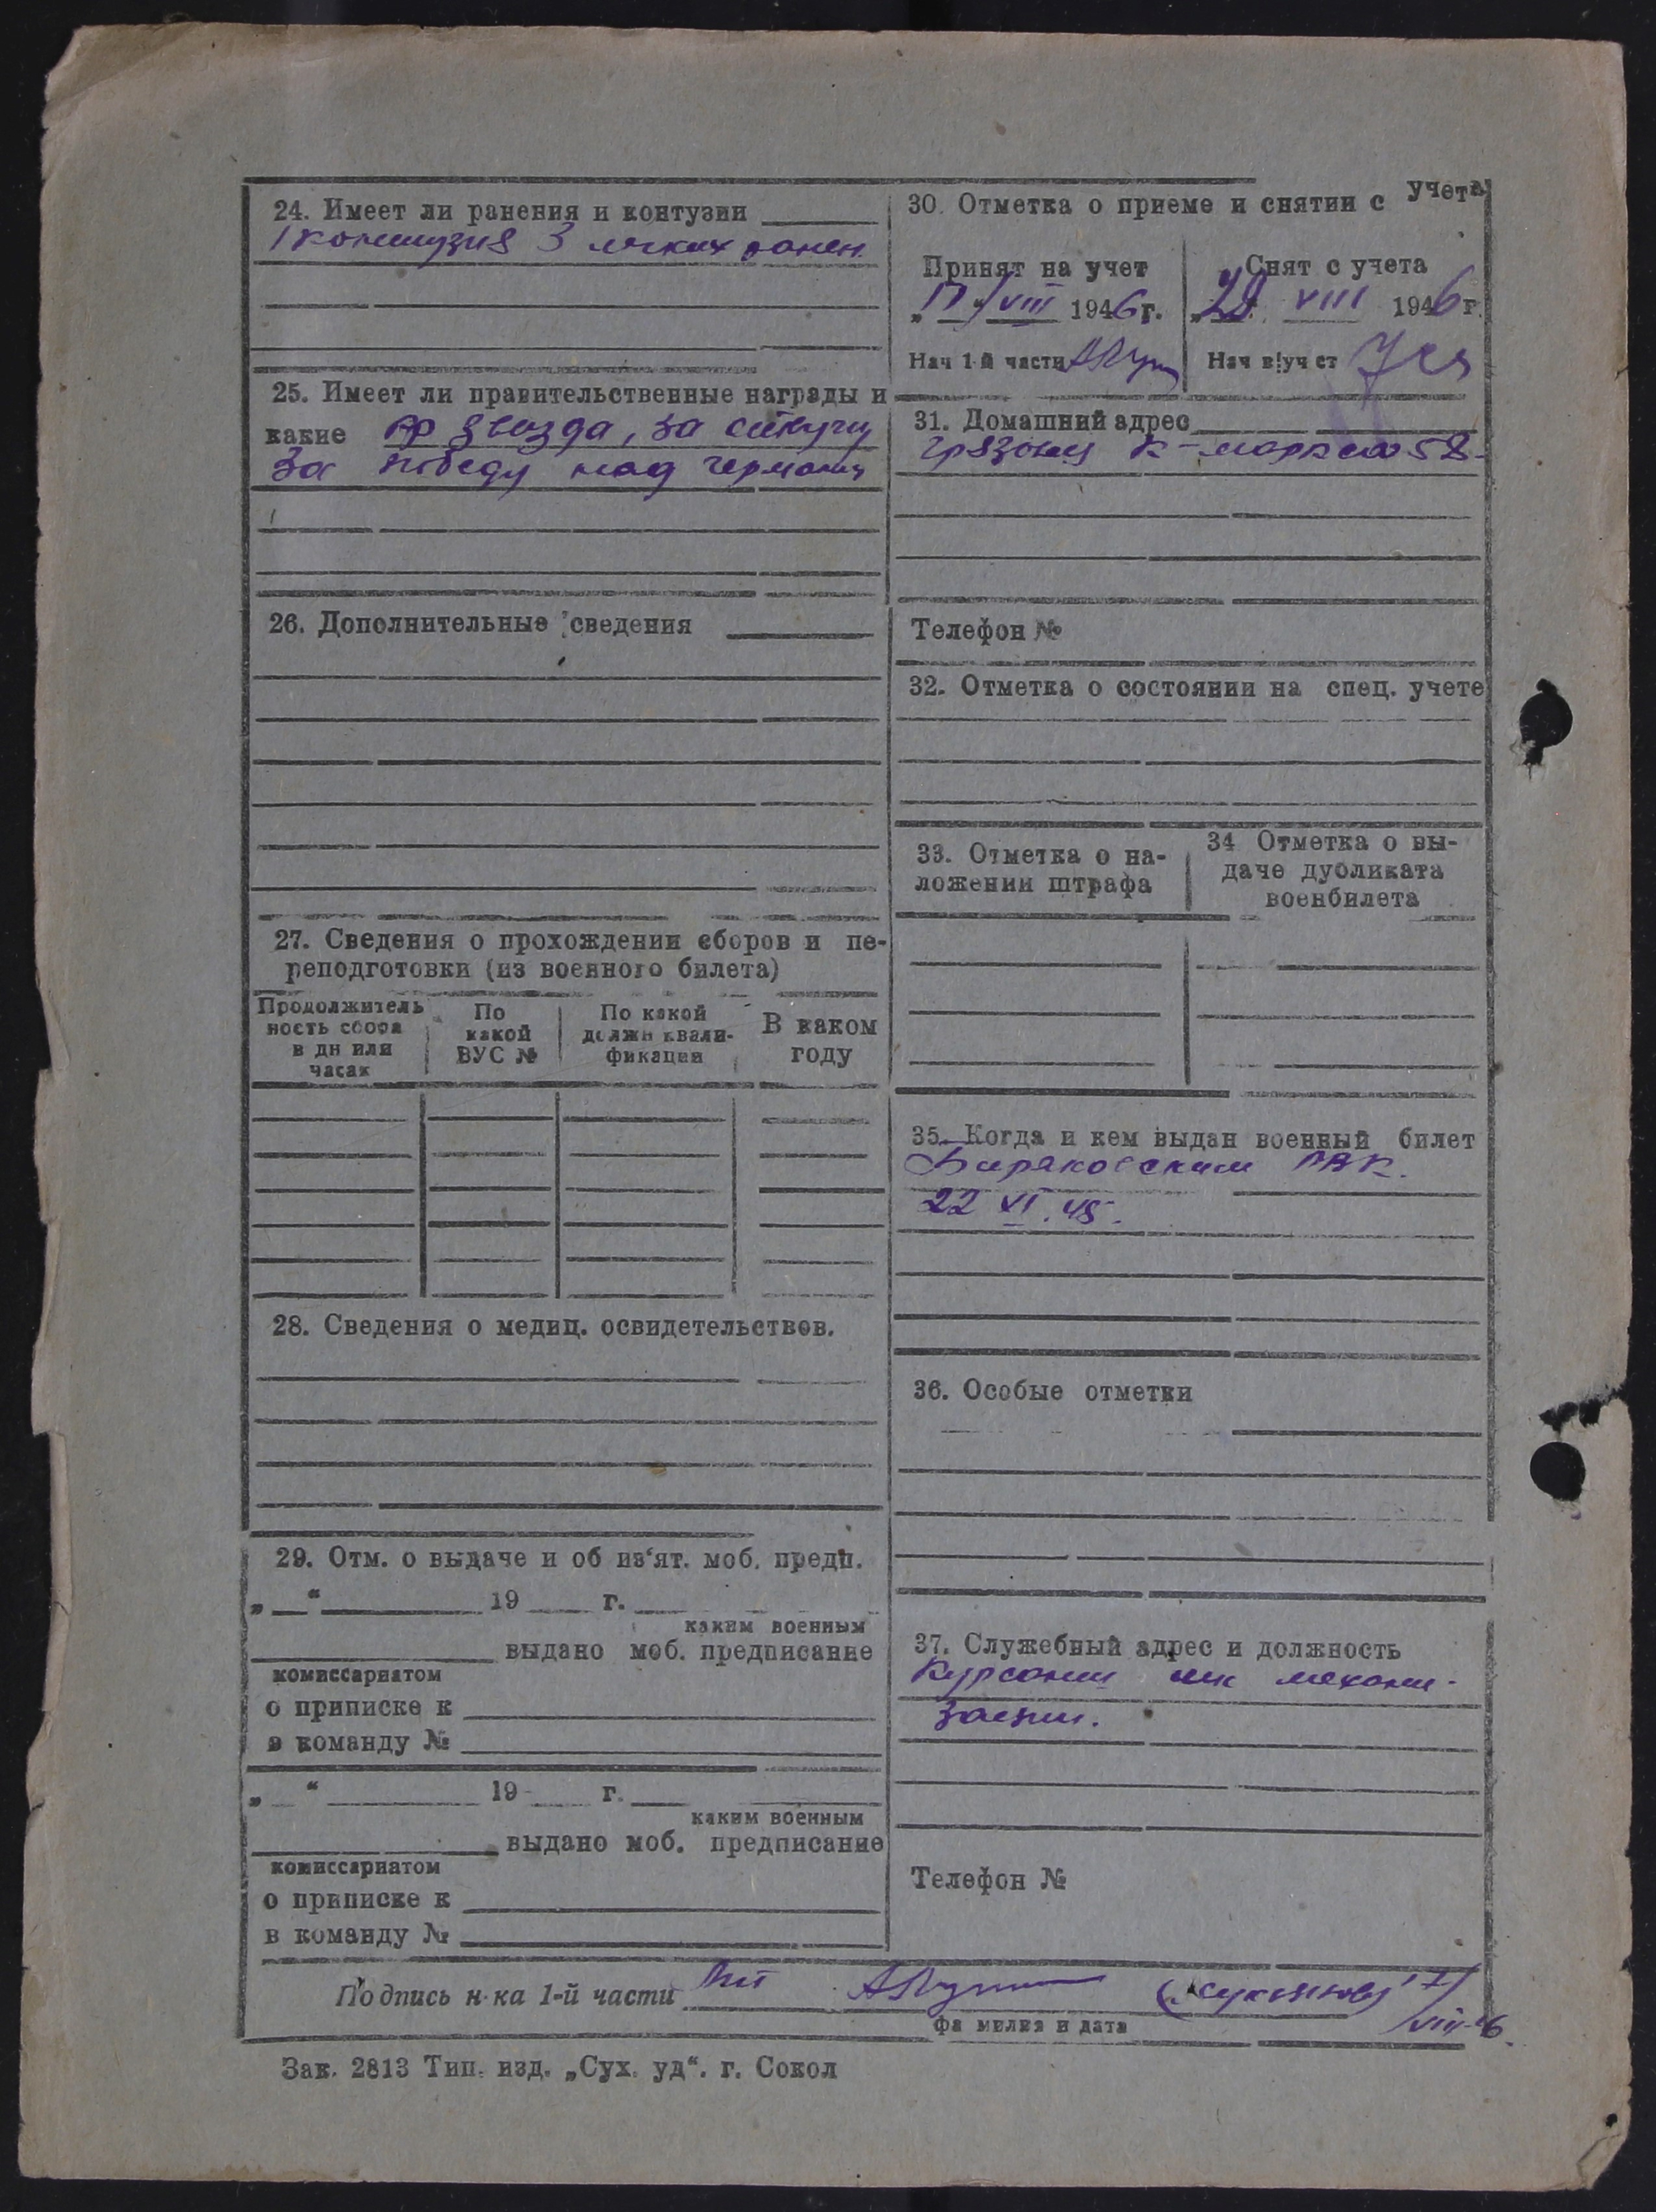 24. Имеет ли ранения и контузии
1 контузия 3 легких ранен.
25. Имеет ли правительственные награды и
какие кр звезда, за
за победу над германи
26. Дополнительные сведения
27. Сведения о прохождении сборов и пе-
реподготовки (из военного билета)
Продолжитель
ность сбора
в дн или
часах
По
какой
ВУС №
По какой
должн квали-
фикации
В каком
году
28. Сведения о медиц. освидетельствов.
29. Отм. о выдаче и об из‘ят. моб. предп.
„ “ 19 г.
каким военным
выдано моб. предписание
комиссариатом
о приписке к
в команду №
„ “ 19 г.
каким военным
выдано моб. предписание
комиссариатом
о приписке к
в команду №
30. Отметка о приеме и снятии с учета
Принят на учет
„17“ VIII 1946 г.
Нач 1-й части
Снят с учета
„28“ VIII 1946 г.
Нач в|уч ст
31. Домашний адрес
Грязовец К-маркса 58.
Телефон №
32. Отметка о состоянии на спец. учете
33. Отметка о на-
ложении штрафа
34 Отметка о вы-
даче дубликата
военбилета
35. Когда и кем выдан военный билет
Биряковским РВК.
22 XI. 45.
36. Особые отметки
37. Служебный адрес и должность
Курсант шк механи-
зации.
Телефон №
Подпись н-ка 1-й части
фамилия и дата
Зак. 2813 Тип. изд. „Сух. уд“. г. Сокол